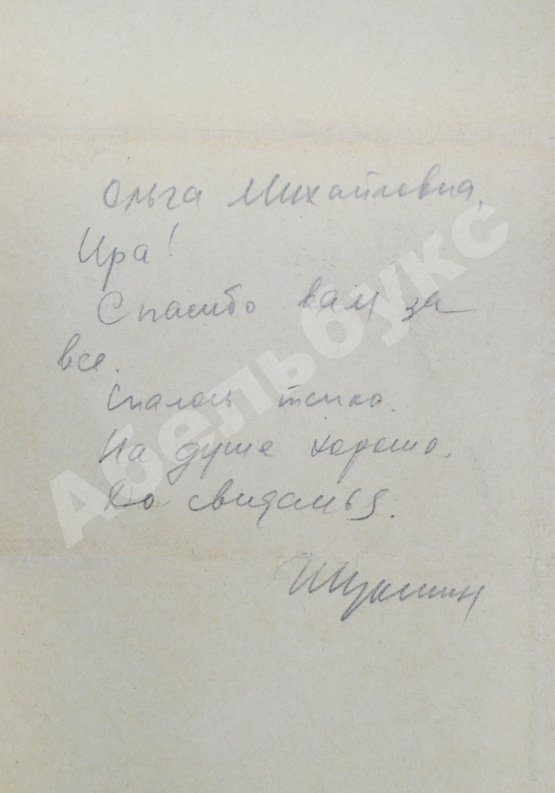 Ольга Михайловна,
Ира!
Спасибо вам за
все.
Спалось тепло.
На душе хорошо.
До свиданья.
Шукшин
Абельбукс